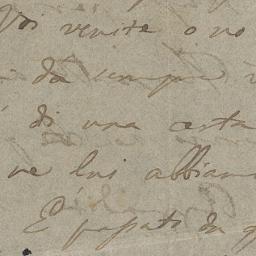 Voi venite o no
dà sempre
di una certa
ne lui abbiam
È passato da q